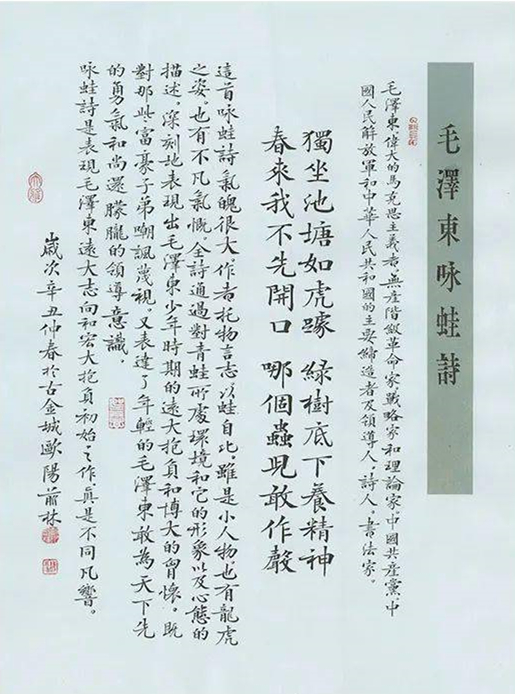 毛澤東咏蛙詩
毛澤東，偉大的馬克思主義者，無產階級革命家戰略家和理論家，中國共產黨、中
國人民解放軍和中華人民共和國的主要締造者及領導人，詩人，書法家。
獨坐池塘如虎踞 綠樹底下養精神
春來我不先開口 哪個蟲兒敢作聲
這首咏蛙詩氣魄很大作者托物言志以蛙自比，雖是小人物也有龍虎
之姿，也有不凡氣慨全詩通過對青蛙所處環境和它的形象以及心態的
描述，深刻地表現出毛澤東少年時期的遠大抱負和博大的胸懷，既
對那些富豪子弟嘲諷蔑視，又表達了年輕的毛澤東敢為天下先
的勇氣和尚還朦朧的領導意識，
咏蛙詩是表現毛澤東遠大志向和宏大抱負初始之作真是不同凡響。
歲次辛丑仲春於古金城歐陽林